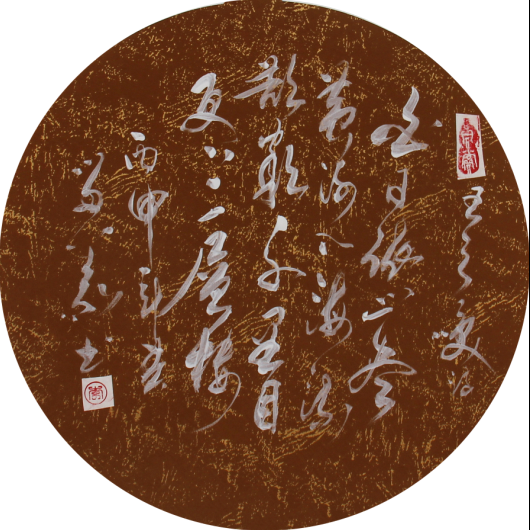 王之涣诗
白日依山尽
黄河入海流
欲穷千里目
更上一层楼
丙申
书